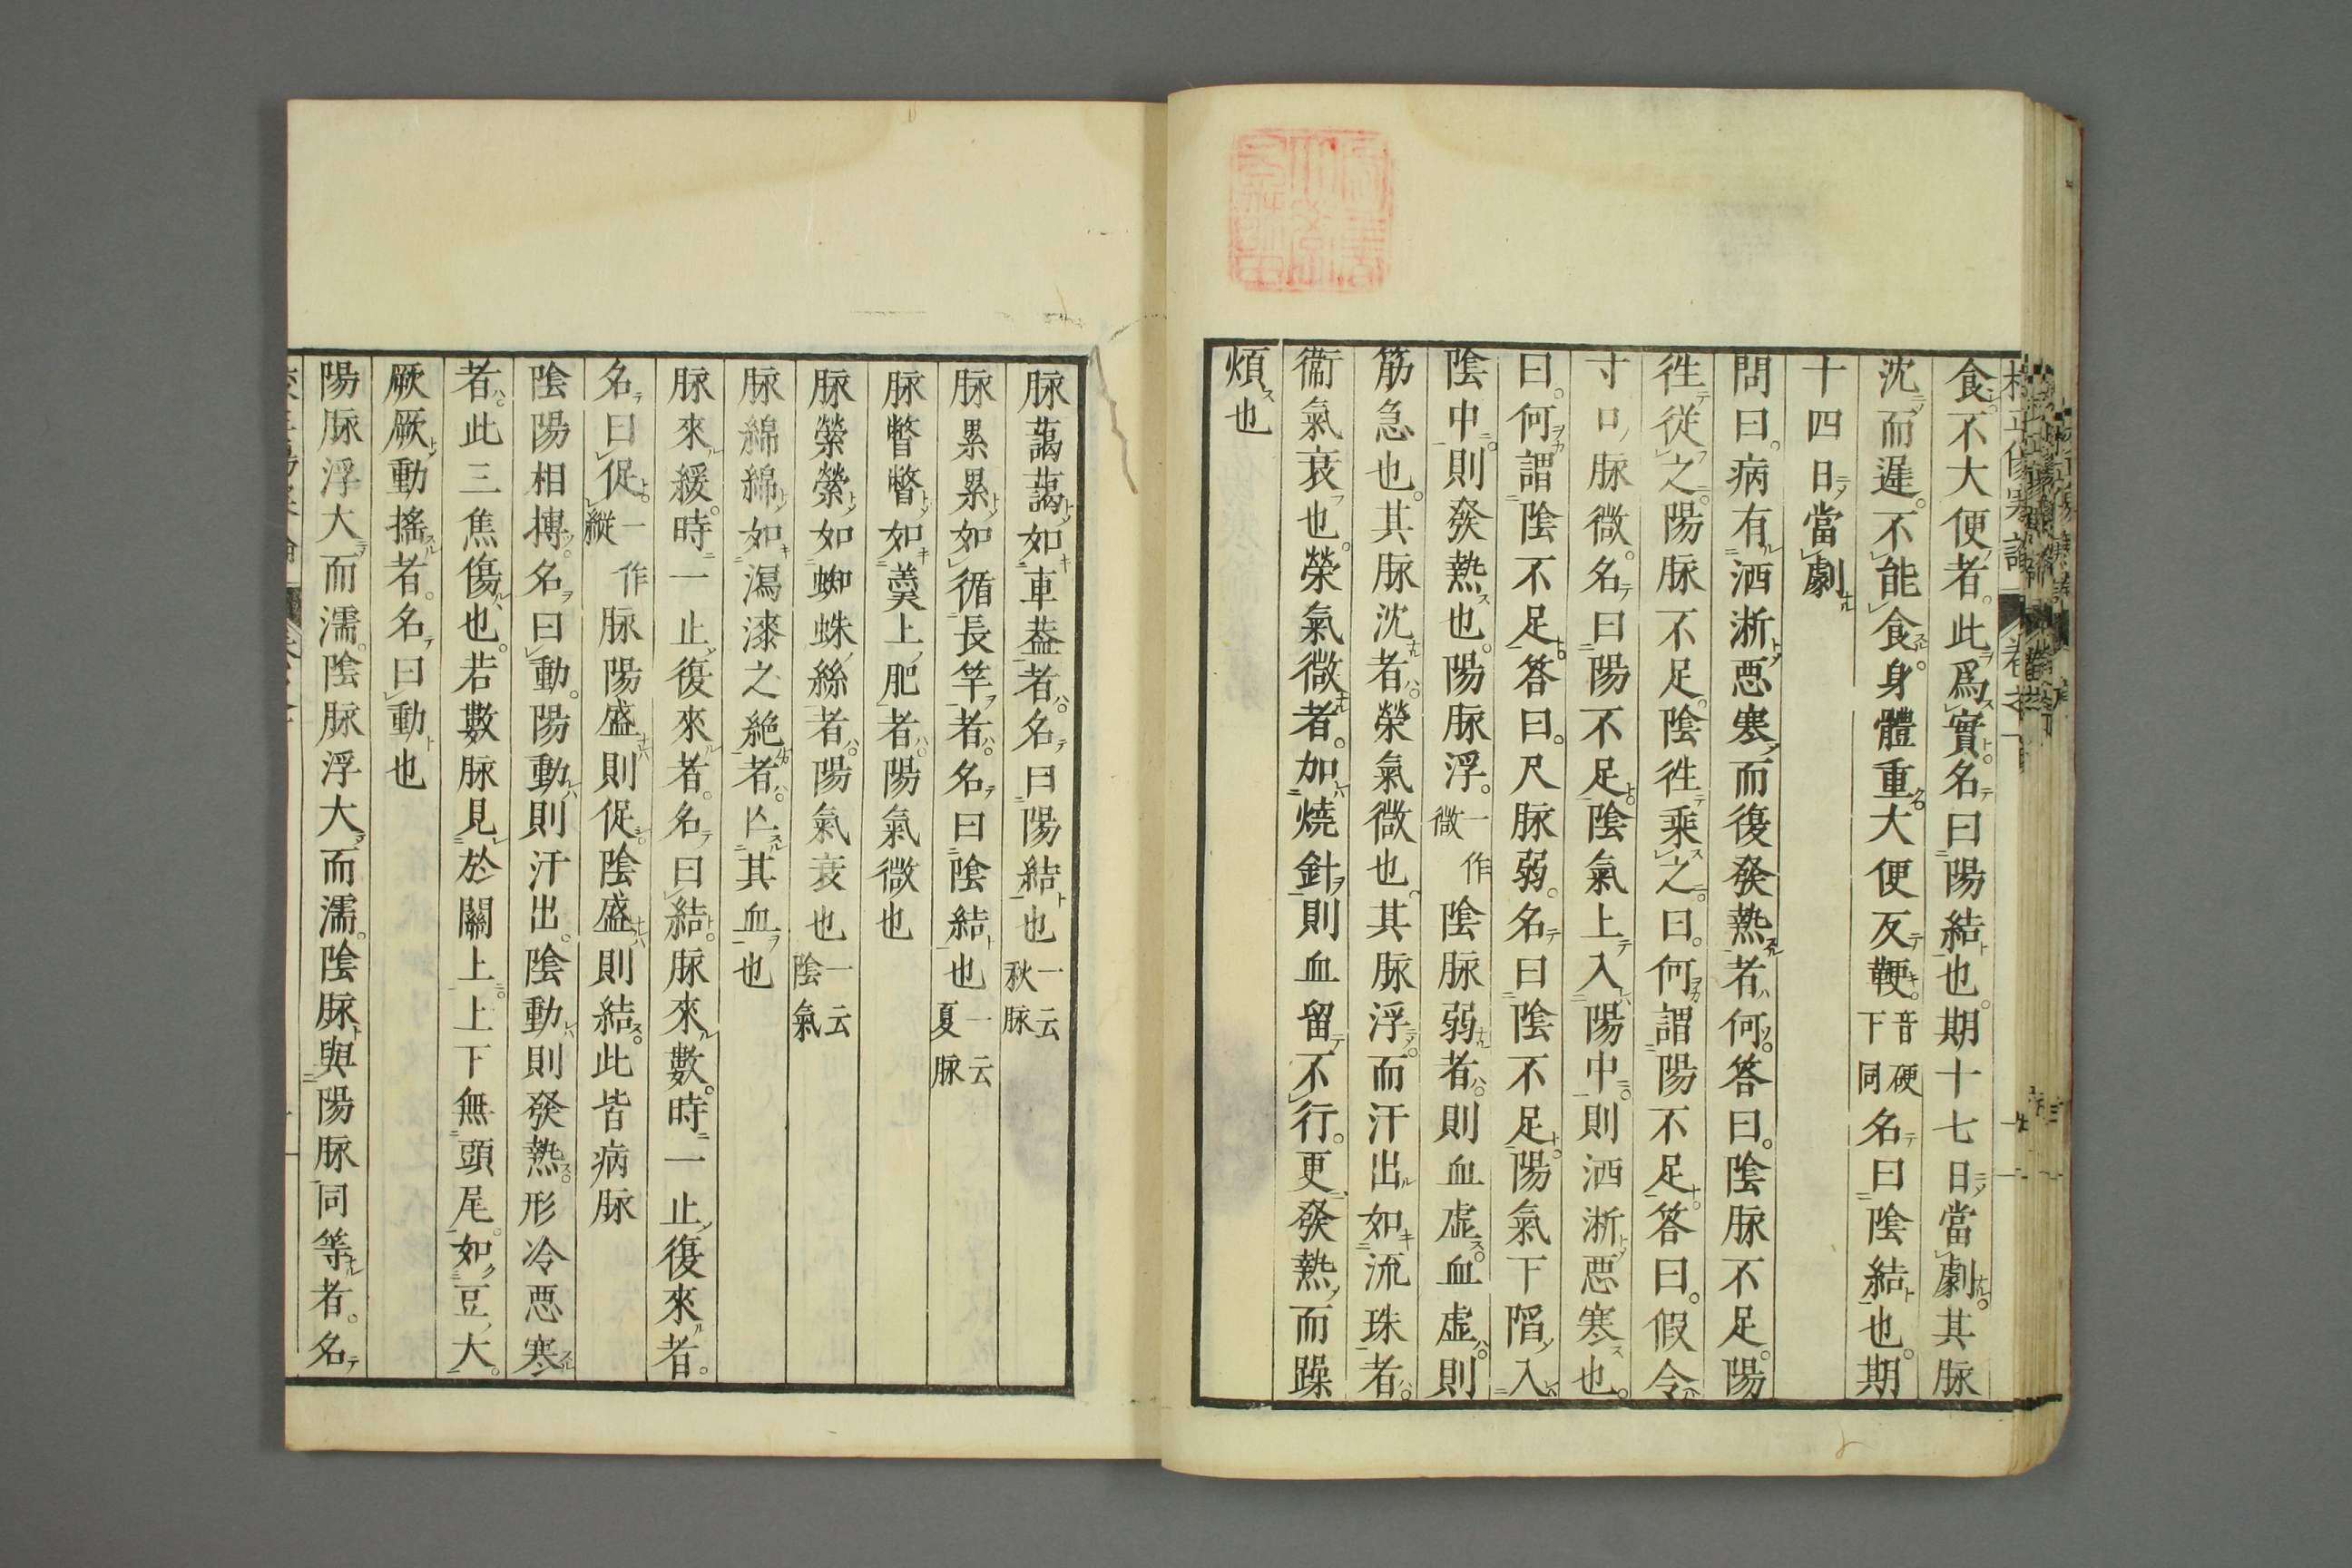 食不大便者。此爲實。名曰陽結也。期十七日當劇。其脉
沈而遲。不能食。身體重。大便反鞕。音硬下同名曰陰結也。期
十四日當劇
問曰。病有洒淅惡寒而復發熱者何。答曰。陰脉不足。陽
徃從之。陽脉不足。陰徃乘之。曰。何謂陽不足。答曰。假令
寸口脉微。名曰陽不足。陰氣上入陽中。則洒淅惡寒也。
曰。何謂陰不足。答曰。尺脉弱。名曰陰不足。陽氣下陷入
陰中。則發熱也。陽脉浮。一作微陰脉弱者。則血虛。血虛。則
筋急也。其脉沈者。榮氣微也。其脉浮。而汗出如流珠者。
衞氣衰也。榮氣微者。加燒針則血留不行。更發熱而躁
煩也
脉藹藹如車葢者。名曰陽結也一云秋脉
脉累累如循長竿者。名曰陰結也一云夏脉
脉瞥瞥如羮上肥者。陽氣微也
脉縈縈如蜘蛛絲者。陽氣衰也一云陰氣
脉綿綿如瀉漆之絶者。亾其血也
脉來緩。時一止復來者。名曰結。脉來數。時一止復來者。
名曰促。一作縱脉陽盛則促。陰盛則結。此皆病脉
陰陽相搏。名曰動。陽動則汗出。陰動則發熱。形冷惡寒
者。此三焦傷也。若數脉見於關上。上下無頭尾。如豆大。
厥厥動搖者。名曰動也
陽脉浮大而濡。陰脉浮大而濡。陰脉與陽脉同等者。名